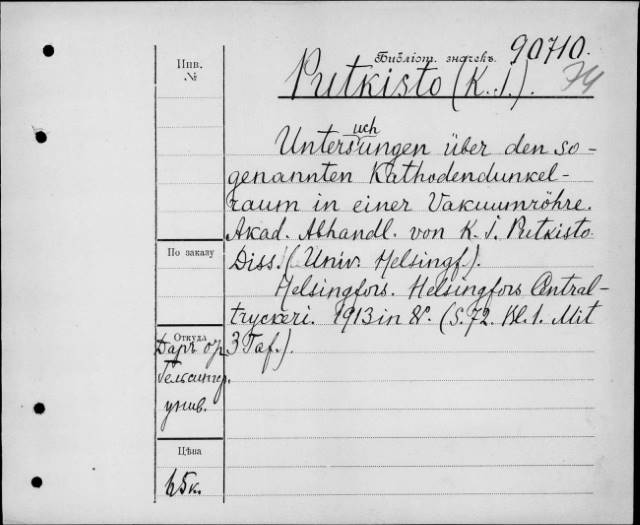 Инв.
№
Библіот. значекъ. 90710.
Putkisto (K. J.). 74
Untersuchungen über den so-
genannten Kathodendunkel-
raum in einer Vakuumröhre.
Akad. Abhandl. von K. J. Putkisto.
Diss. (Univ. Helsingf.).
Helsingfors. Helsingfors Central-
tryckeri. 1913 in 8º. (S. 72. Bl. 1. Mit
3 Taf.).
По заказу
Откуда
Даръ от
Гельсингф.
унив.
Цѣна
65к.